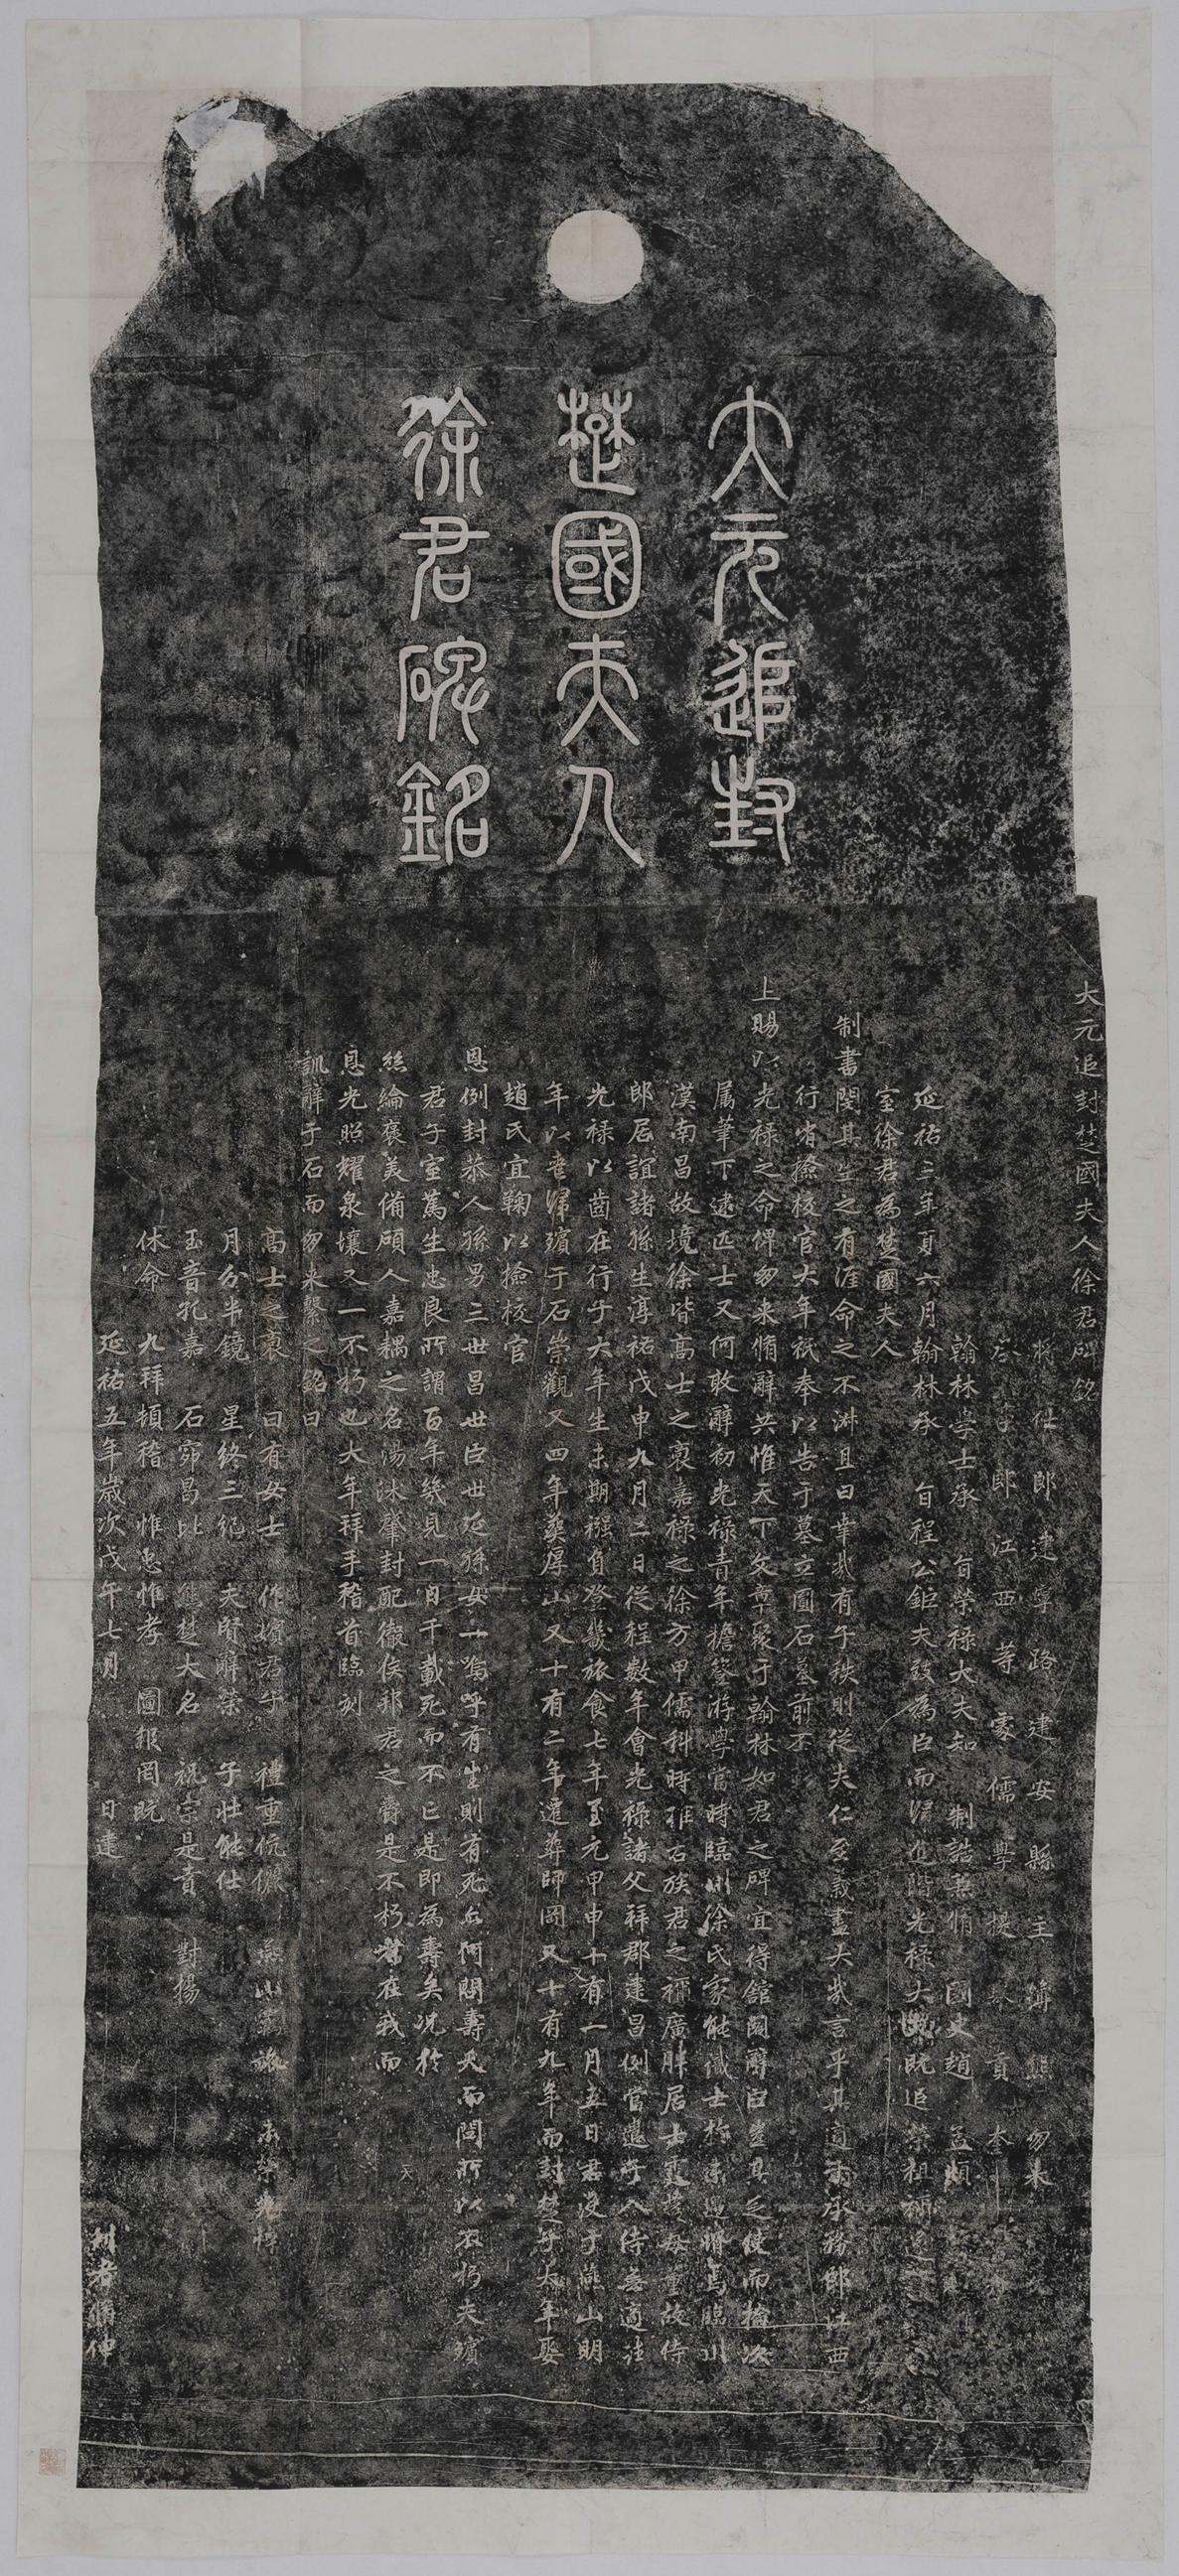 大元追封
楚國夫人
徐君碑銘
大元追封楚國夫人徐君碑銘
將仕郎建寧路建安縣主簿熊朋來
郎江西等處儒學提舉貢奎
翰林學士承旨榮祿大夫知制誥兼脩國史趙孟頫
延祐三年夏六月翰林承旨程公鉅夫致為臣而歸進階光祿大既追榮祖禰
室徐君為楚國夫人
制書閔其生之有涯命之不淑且曰幸哉有子秩則從夫仁至義盡大哉言乎其適承務郎江西
行省撿校官大年祇奉以告于墓立圓石墓前丕
上賜以光祿之命俾朋来脩辭共惟天下文章聚于翰林如君之碑宜得館閣辭臣豈其乏使而
屬筆下逮匹士又何敢辭初光祿青年擔簦游學當時臨川徐氏家能讖士於臨川
漢南昌故境徐皆高士之裔嘉祿之徐方甲儒科時推右族君之禰廣胖居士故侍
郎居誼諸孫生淳祐戊申九月二日從程數年會光祿諸父拜郡建昌例當遣子入侍
光祿以齒在行子大年生未期襁負啓幾旅食七年至元甲申十有一月五日君沒于燕山明
年以喪歸殯于石崇觀又四年葬厚山又十有二年遷葬師岡又十有九年而封楚子大年娶
趙氏宜鞠以撿校官
恩例封恭人孫男三世昌世臣世延孫女一嗚呼有生則有死女何問壽夭而問所以不朽夫殯
君子室篤生忠良所謂百年幾見一日千載死而不亡是即為壽矣况於
絲綸褒美備碩人嘉耦之名湯沐肇封配徹侯邦君之爵是不朽在我而
恩光昭耀泉壤又一不朽也大年拜手稽首臨刻
訓辭于石而朋来繫之銘曰
高士之裔 曰有女士 作嬪君子 禮重伉儷 燕山
月分半鏡 星終三紀 夫賢辭榮 子壯能仕
玉音孔嘉 石窌昌比 熊楚大名 祝宗是責 對揚
休命 九拜頓稽 惟忠惟孝 圖報罔既
延祐五年歲次戊午七月 日建 伸